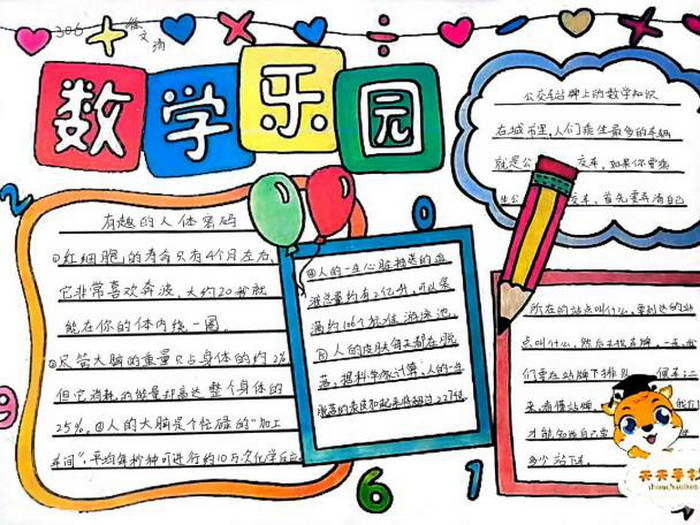 306
数学乐园
有趣的人体密码
①红细胞的寿命只有4个月左右,
它非常喜欢奔波,大约20秒就
能在你的体内绕一圈。
②尽管大脑的重量只占身体的约2%
但它消耗的能量却高达整个身体的
25%。③人的大脑是个忙碌的“加工
车间”,平均每秒钟可进行约10万次化学反应
④人的一生心脏输送的血
液总量约有2亿升,可以装
满约106个标准游泳池。
⑤人的皮肤每天都在脱
落,据科学家计算,人的一生
脱落的表皮加起来将超过227千克。
公交站牌上的数学知识
在城市里,人们乘坐最多的车辆
就是公 交车,如果你要乘
坐公 交车,首先要弄清自己
所在的站点叫什么,要到达的站
点叫什么,然后去找站牌,一
们要在站牌下排队
来,看懂站牌, 我们
才能知道自己要
多少站下车。
2
0
9
6
1
天天手抄